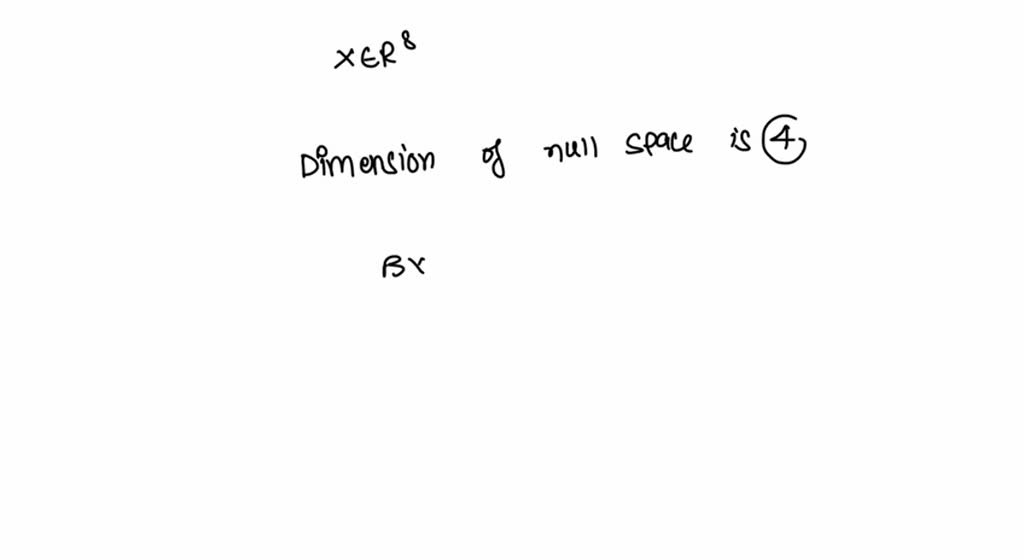 X∈R⁸
Dimension of null space is 4,
BY